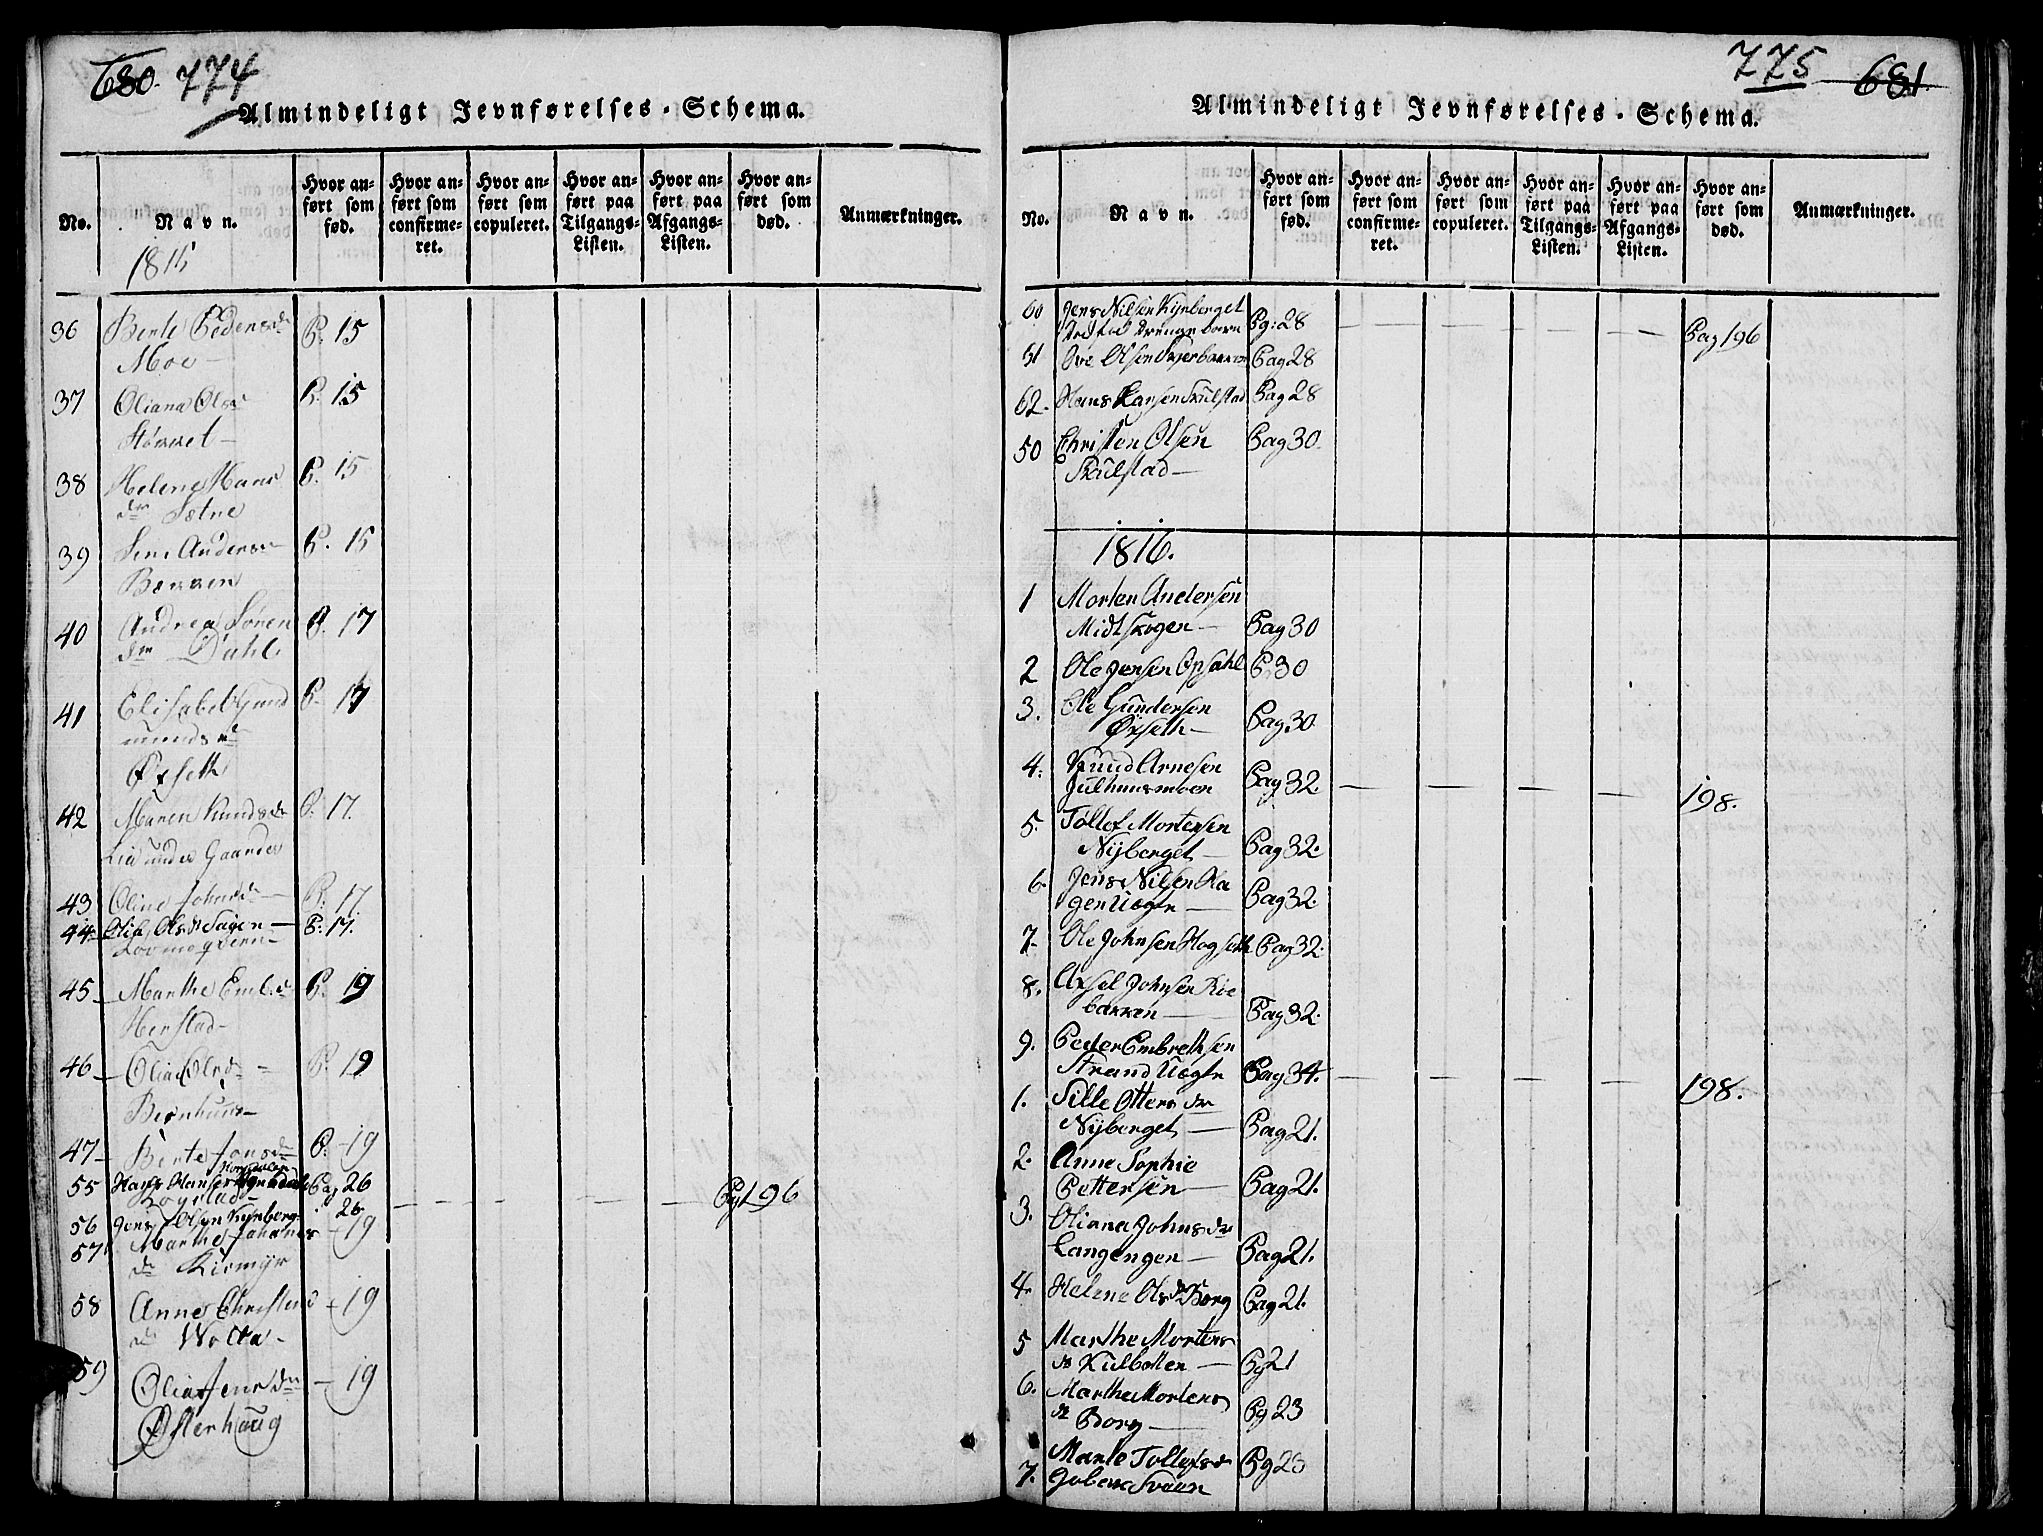 680. 774
Almindeligt Jevnførelses-Schema.
No.
Navn.
Hvor anført som født.
Hvor anført som confirmeret.
Hvor anført som copuleret.
Hvor anført paa Tilgangs-Listen.
Hvor anført paa Afgangs-Listen.
Hvor anført som død.
Anmærkninger.
1815
36 Berte Pedersdr P. 15
Moe
37 Oliana Olsdr P. 15
38 Helene Hans P. 15
dr Sætre
39 Anders P. 15
Bakken
40 Andrea Sören P. 17
dr Dahl
41 Elisabet Gund P. 17
munds dr
Öxseth
42 Maren Knudsdr P. 17.
Lia under Gaarder
43 Oline Johnsdr P. 17
44 Olsdr P. 17.
45 Marthe Emb.dr P. 19
Herstad
46 Olia Olsdr P. 19
Bernhuus
47 Berte Jonsdr P. 19
55 Hans Hansen Pag 26 Pg 196
Rogstad
56 Jens Olsen Kynberg 26
57 Marthe Johanes - 19
dr Kiernyr
58 Anne Christens - 19
dr Wolla
59 Olia Jensdr - 19
Österhaug
775 681
Almindeligt Jevnførelses-Schema.
No.
Navn.
Hvor anført som fød.
Hvor anført som confirmeret.
Hvor anført som copuleret.
Hvor anført paa Tilgangs-Listen.
Hvor anført paa Afgangs-Listen.
Hvor anført som død.
Anmærkninger.
60 Jens Nilsen Kynberget
Drengebarn Pg: 28 Pag 196
61 Ove Olsen Pag 28
62. Hans Larsen Skulstad Pag 28
50 Christen Olsen Pag 30
Skulstad
1816.
1 Morten Andersen
Midtskogen Pag 30
2 Ole Jensen Opsahl P 30
3. Ole Gundersen
Öxseth Pag 30
4. Knud Arnesen
Julhuusmoen Pag 32. 198.
5. Tollof Mortensen
Nyberget Pag 32.
6. Jens Nilsen Ha
gen Uægte Pag 32.
7. Ole Johnsen Hogseth Pag 32.
8. Axsel Johnsen Kie
bakken Pag 32.
9. Peder Embrethsen
Strand Uægte Pag 34. 198.
1. Sille Otters dr
Nyberget Pag 21.
2. Anne Sophie
Pettersen Pag 21.
3. Oliana Johnsdr
Langengen Pag 21.
4. Helene Olsdr Borg Pag 21.
5 Marthe Mortens
dr Kulbotten Pg 21
6. Marthe Mortens
dr Borg Pg 23
7. Marte Tollofsdr Pg 23